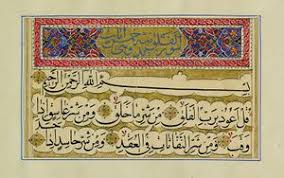 بسم الله الرحمن الرحيم
قل اعوذ برب الفلق من شر ما خلق ومن شر غاسق اذا
وقب ومن شر النفاثات فى العقد ومن شر حاسد اذا